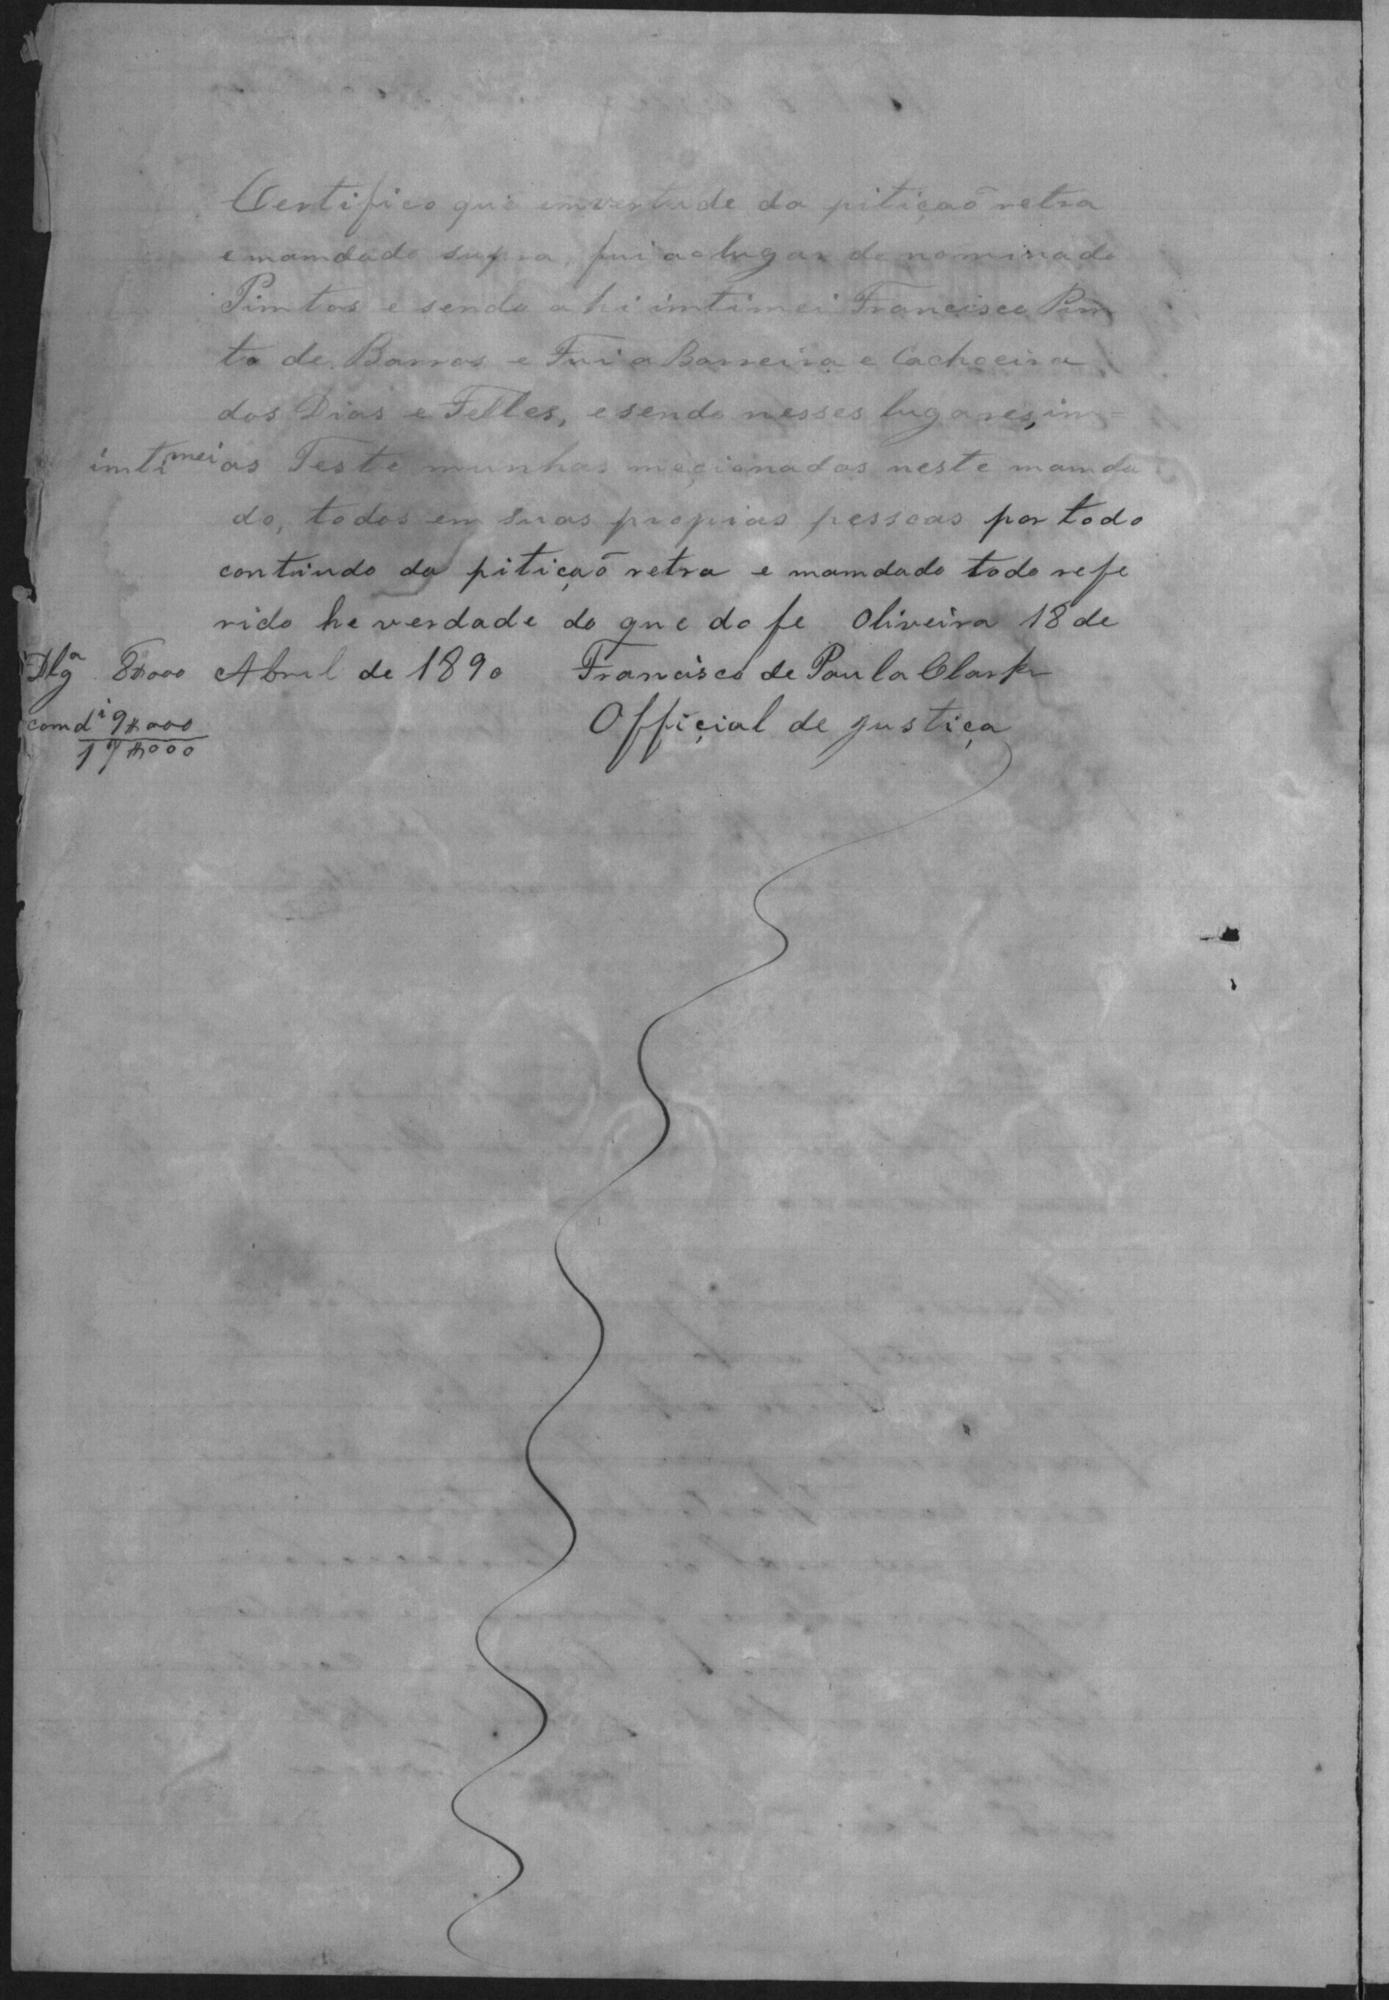 Certifico que emvertude da pitiçaõ retra
e mamdado supra, fui ao lugar de nominado
Pimtos e sendo ahi imtimei Francisco Pim
to de Barros e Fui a Barreira e Cachoeira
dos Dias e Telles, e sendo nesses lugares, im=
imtimei as Teste munhas mecionados neste mamda
do, todos em suas propias pessoas por todo
contiudo da pitiçaõ retra e mamdado todo refe
rido he verdade do que do fe Oliveira 18 de
Abril de 1890 Francisco de Paula Clark
Official de justiça
Dlgª 8$000
comdi 9$000
17$000